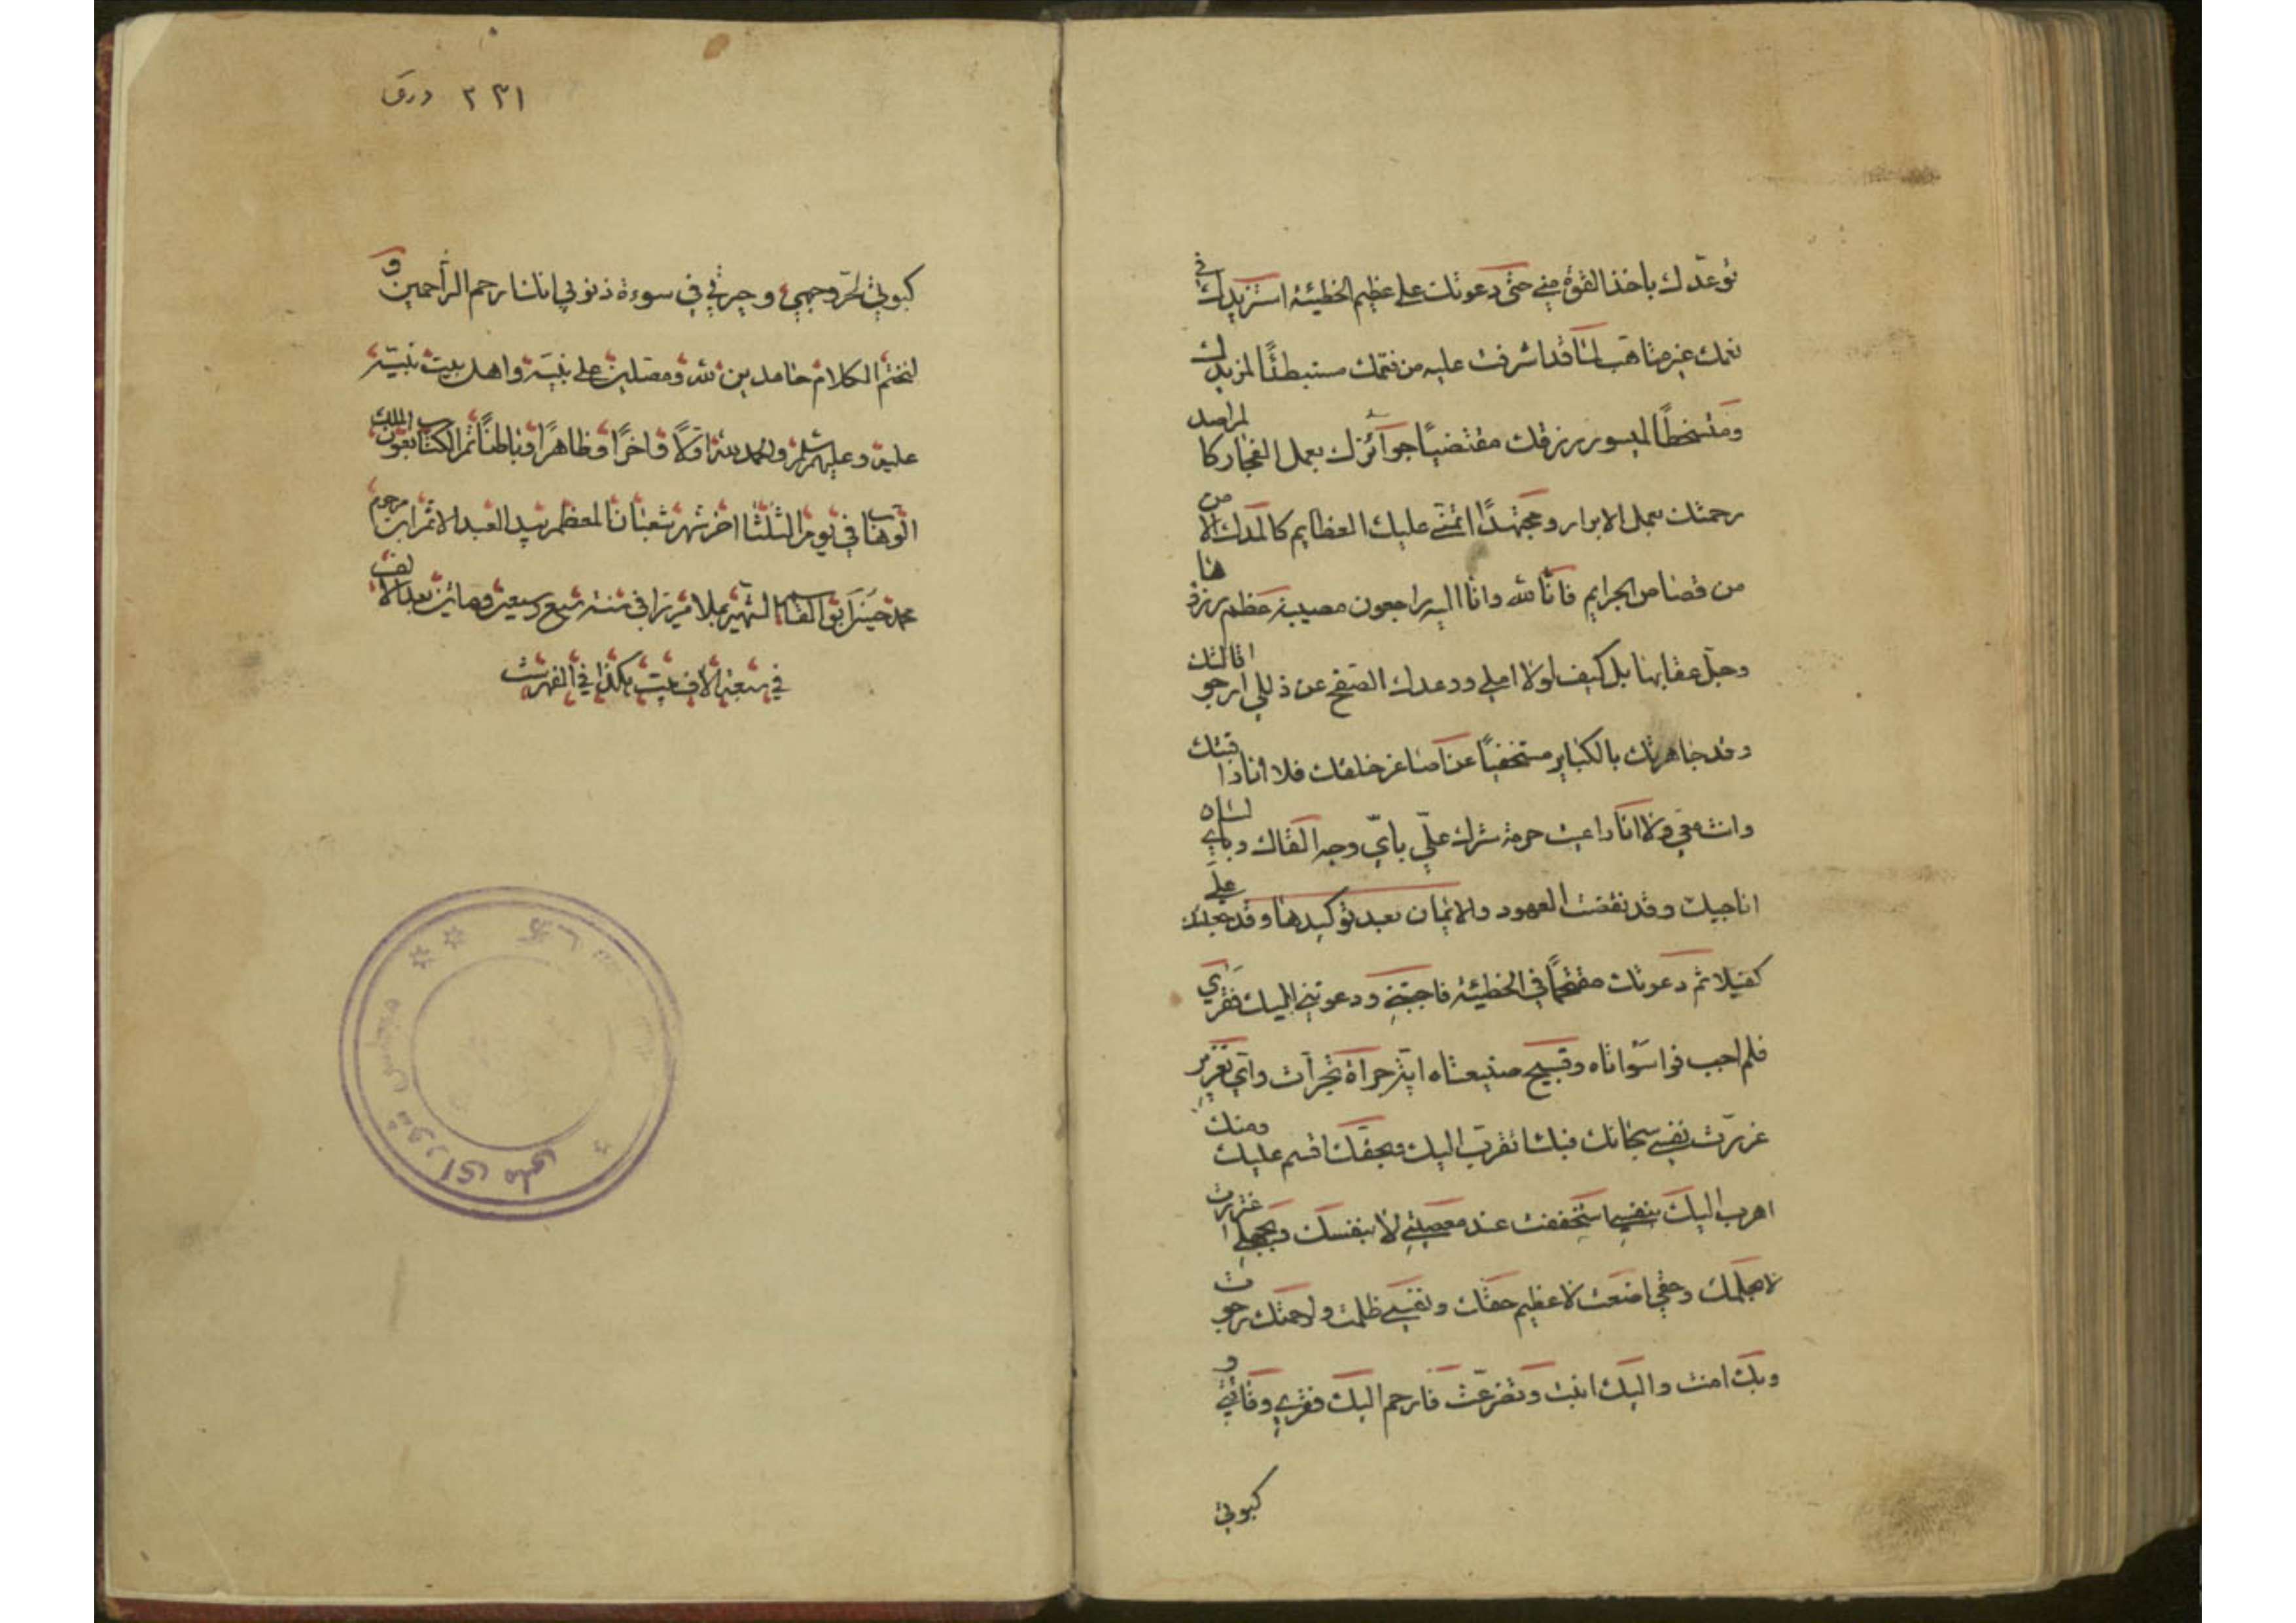 توعدك باخذ القوة مني حتى دعوتك على عظيم الخطيئة استزيدك في
نعمك غير متاهب لما قد اشرفت عليه من نقمتك مستبطئًا لمزيدك
ومتسخطًا لميسور رزقك مقتضيًا جوآئزك بعمل الفجار كالمراصد
رحمتك بعمل الابرار ومجتهدًا اتمنى عليك العظايم كالمدل الامن
من قصاص الجرايم فانّا لله وانا اليه راجعون مصيبة عظم رزؤها
وجل عقابها بل كيف لولا املي ووعدك الصفح عن زللي ارجو اقالتك
وقد جاهرتك بالكباير مستخفيًا عن اصاغر خلقك فلا انا راقبتك
وانت معي ولا انا راعيت حرمة سترك علّي بايّ وجه القاك وباي لسان
اناجيك وقد نقضت العهود والايمان بعد توكيدها وقد جعلتك عليّ
كفيلا ثم دعوتك مقتحمًا في الخطيئة فاجبتني ودعوتني اليك فقري
فلم اجب فواسواتاه وقبيح صنيعتاه اية جراة تجرأت واي تغرير
غررت نفسي سبحانك فبك اتقرب اليك وبحقك اقسم عليك ومنك
اهرب اليك بنفسي استخففت عند معصيتي لا بنفسك وبجهلي اغتررت
لا بحلمك وحقي اضعت لا عظيم حقك ونفسي ظلمت ولرحمتك رجوت
وبك امنت واليك انبت وتضرعت فارحم اليك فقري وفاقتي و
كبوتي
٢٣١ ورق
كبوتي لحر وجهي وحيرتي في سوءة ذنوبي انك ارحم الراحمين و
لنختم الكلام حامدين لله ومصلين على نبيه واهل بيت نبيه
عليه وعليهم سلم والحمد لله اولًا واخرًا وظاهرًا وباطنًا تم الكتاب بعون الملك
الوهاب في يوم الثلثا اخر شهر شعبان المعظم بيد العبد الاثم ابن مرحوم
محمد حسين ابو القاسم الشهير بملا ميرزا في سنة سبع وسبعين ومائتين بعد الالف
في سبعة الاف بيت هكذا في الفهرست
مجلس شورای ملی